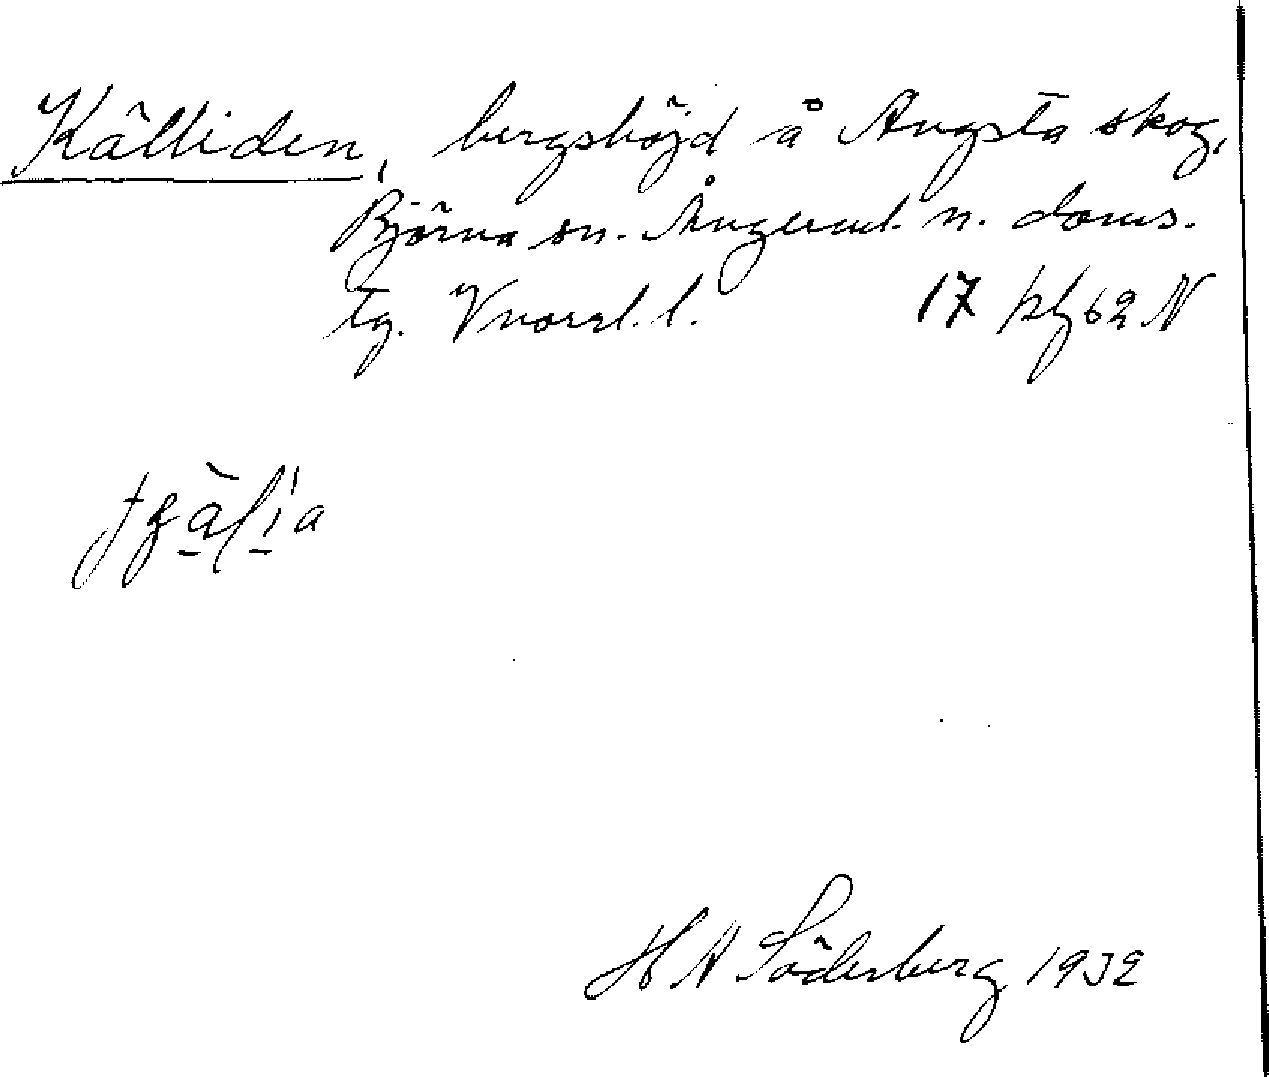 Källiden, bergshöjd å Angsta skog,
Björna sn. Ångerml. n. doms.
tg. Vnorrl. l. 17 kbl 62 N
H A Söderberg 1932